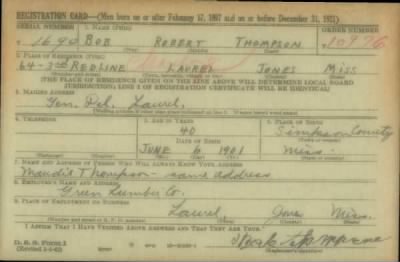 REGISTRATION CARD—(Men born on or after February 17, 1897 and on or before December 31, 1921)
SERIAL NUMBER 1. NAME (Print) ORDER NUMBER
1690 BOB ROBERT THOMPSON 10976
(First) (Middle) (Last)
2. PLACE OF RESIDENCE (Print)
64-3rd REDLINE LAUREL JONES MISS
(Number and street) (Town, township, village, or city) (County) (State)
[THE PLACE OF RESIDENCE GIVEN ON THE LINE ABOVE WILL DETERMINE LOCAL BOARD
JURISDICTION; LINE 2 OF REGISTRATION CERTIFICATE WILL BE IDENTICAL]
3. MAILING ADDRESS
Gen. Del. Laurel
[Mailing address if other than place indicated on line 2. If same insert word same]
4. TELEPHONE 5. AGE IN YEARS 6. PLACE OF BIRTH
40 Simpson County
DATE OF BIRTH (Town or county)
JUNE 6 1901 Miss.
(Mo.) (Day) (Yr.) (State or country)
7. NAME AND ADDRESS OF PERSON WHO WILL ALWAYS KNOW YOUR ADDRESS
Maudie Thompson - same address
8. EMPLOYER'S NAME AND ADDRESS
Green Lumber Co.
9. PLACE OF EMPLOYMENT OR BUSINESS
Laurel Jones Miss.
(Number and street or R. F. D. number) (Town) (County) (State)
I AFFIRM THAT I HAVE VERIFIED ABOVE ANSWERS AND THAT THEY ARE TRUE.
D. S. S. Form 1